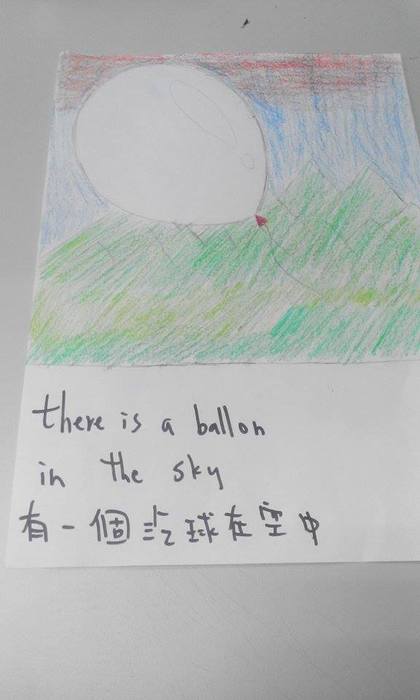 there is a ballon
in the sky
有一個球在空中